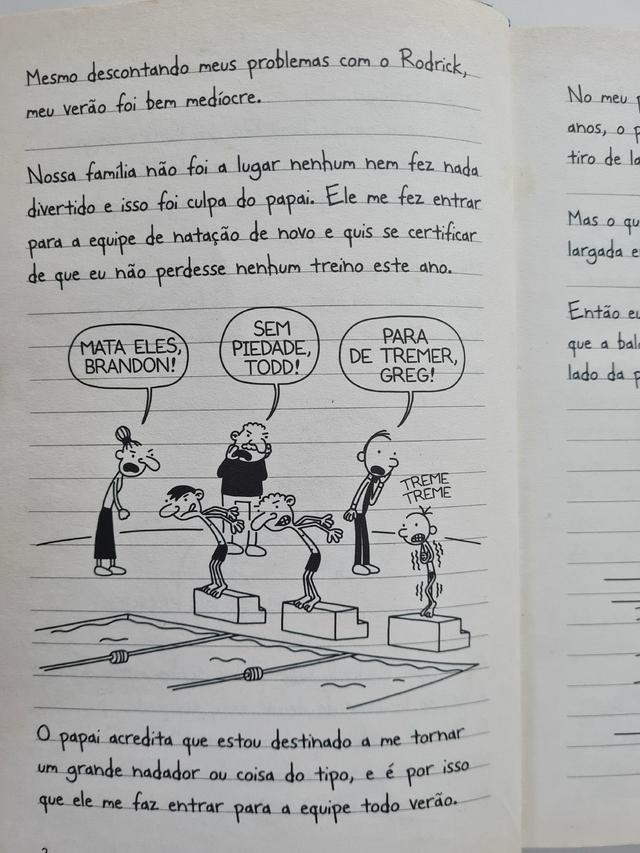 Mesmo descontando meus problemas com o Rodrick,
meu verão foi bem medíocre.
Nossa família não foi a lugar nenhum nem fez nada
divertido e isso foi culpa do papai. Ele me fez entrar
para a equipe de natação de novo e quis se certificar
de que eu não perdesse nenhum treino este ano.
MATA ELES,
BRANDON!
SEM
PIEDADE,
TODD!
PARA
DE TREMER,
GREG!
TREME
TREME
O papai acredita que estou destinado a me tornar
um grande nadador ou coisa do tipo, e é por isso
que ele me faz entrar para a equipe todo verão.
No meu
anos, o
tiro de
Mas o
largada
Então eu
que a
lado da